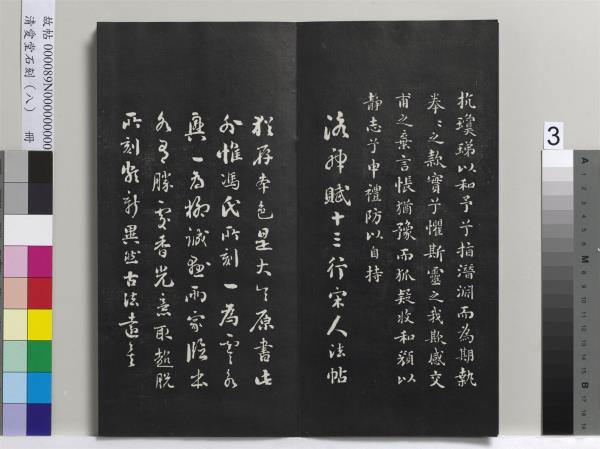 抗瓊珶以和予兮指潛淵而為期執
拳〻之款實兮懼斯靈之我欺感交
甫之棄言悵猶豫而狐疑收和顏以
靜志兮申禮防以自持
洛神賦十三行宋人法帖
猶存本色是大令原書此
外惟馮氏所刻一為永
興一為柳誠懸兩家臨本
各有勝處香光意取超脫
所刻新異然古法遠矣
故帖 000089N000000000
清愛堂石刻(八) 冊
3
A
M
B